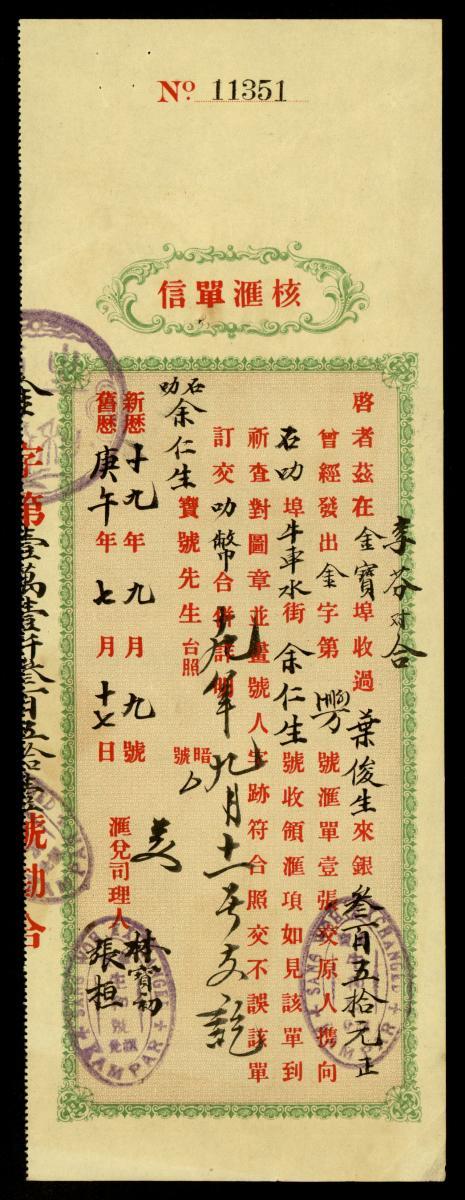 Nº 11351
核滙單信
李芬对合
啓者茲在金寶埠收過葉俊生來銀叁百五拾元正
曾經發出金字第號滙單壹張交原人攜向
石叻埠牛車水街余仁生號收領滙項如見該單到
祈查對圖章並畫號人字跡符合照交不誤該單
訂交叻幣合併註明
九年九月十一号支訖
石叻余仁生寶號先生台照
暗號
新歷十九年九月九號
舊歷庚午年七月十七日
滙兌司理人林寶初
張桓
字第壹萬壹仟叁百五拾壹號勘合
KAMPAR
KAMPAR